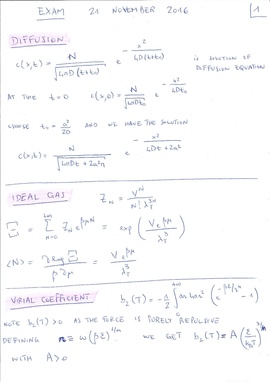 EXAM 21 NOVEMBER 2016 1
DIFFUSION
c(x,t) = N / √(4πD(t+t₀)) e^(-x²/4D(t+t₀)) IS SOLUTION OF DIFFUSION EQUATION
AT TIME t=0 c(x,0) = N / √(4πDt₀) e^(-x²/4Dt₀)
CHOOSE t₀ = a²/2D AND WE HAVE THE SOLUTION
c(x,t) = N / √(4πDt + 2a²π) e^(-x²/4Dt+2a²)
IDEAL GAS Z_N = V^N / N! λ_T^3N
Ξ = Σ_{N=0}^{+∞} Z_N e^{βμN} = exp(V e^{βμ} / λ_T³)
⟨N⟩ = ∂ log Ξ / β ∂μ = V e^{βμ} / λ_T³
VIRIAL COEFFICIENT b₂(T) = -1/2 ∫₀^{+∞} 4π r² (e^{
NOTE b₂(T) > 0 AS THE FORCE IS PURELY REPULSIVE
DEFINING WE GET b₂(T) = A
WITH A > 0